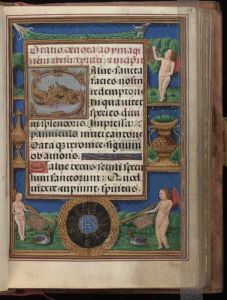 Oratio devota ad ymagi
nem
Salve sancta
facies nostri
redemptoris
In qua nitet
species divi
ni splendoris Impressa
panniculo nivei candoris
Dataque veronice signum
ob amoris
Salve decus seculi specu
lum sanctorum Quod
videre cupiunt spiritus